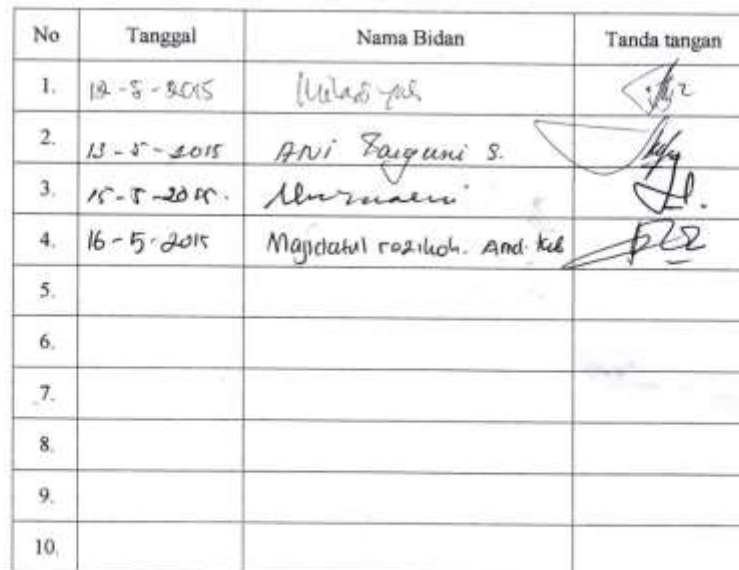 No Tanggal Nama Bidan Tanda tangan
1. 12-5-2015
2. 13-5-2015 ANi S.
3. 15-5-2015.
4. 16-5-2015 Majidatul rozikoh. Amd. Keb
5.
6.
7.
8.
9.
10.